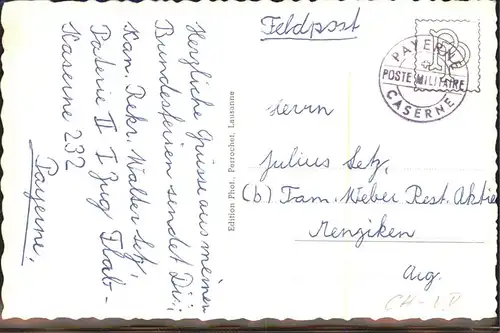 Feldpost
PAYERNE
POSTE MILITAIRE
CASERNE
Herzliche Grüsse aus meinen
Bundesferien sendet Dir:
Kan. Rekr. Walter Setz,
Batterie II I Zug Flab-
Kaserne 232
Payerne.
Edition Phot. Perrochet, Lausanne
Herrn
Julius Setz,
(b) Fam. Weber Rest. Aktien
Menziken
Arg.
CH-1.P